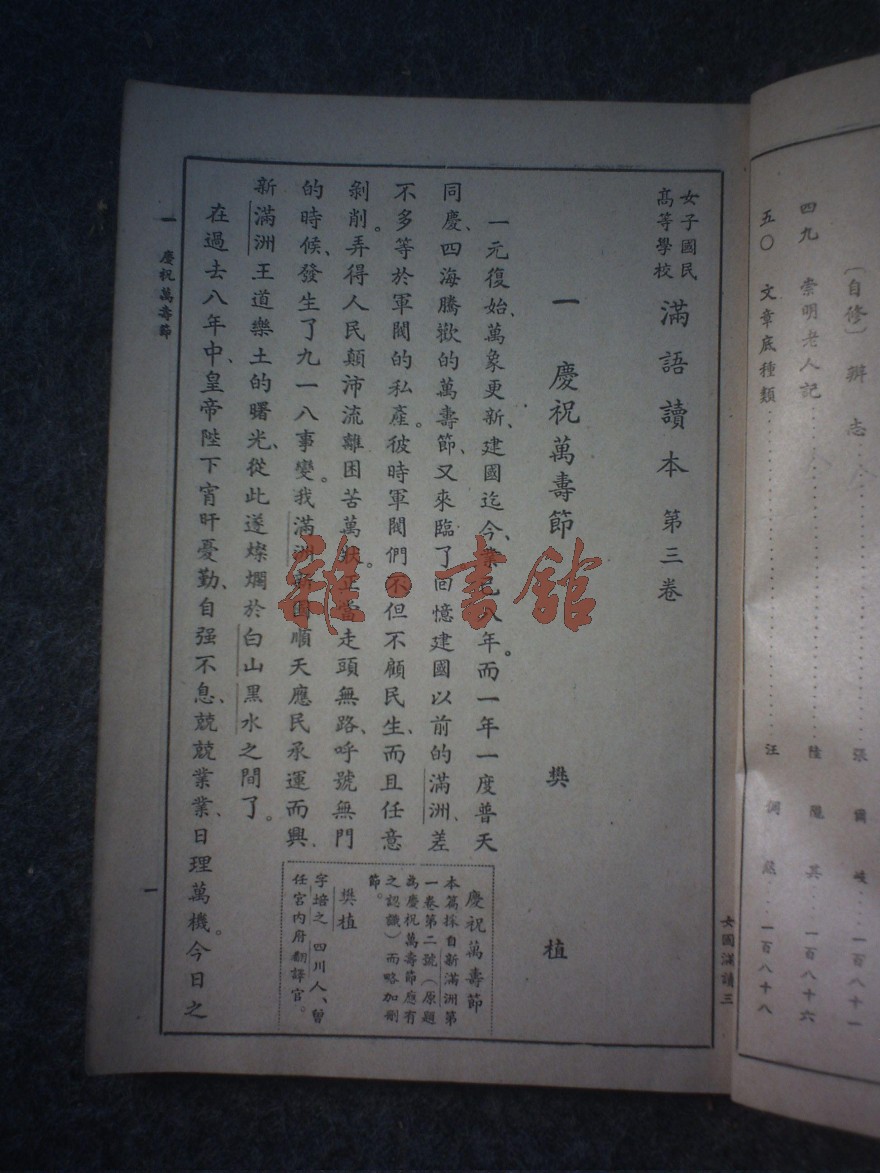 (自修) 辨志……張爾岐 一百八十一
四九 崇明老人記……陸隴其 一百八十六
五〇 文章底種類……汪 一百八十八
女國滿讀三
女子國民
高等學校
滿語讀本 第三卷
一 慶祝萬壽節 樊植
一元復始、萬象更新、建國迄今、業已八年。而一年一度普天
同慶、四海騰歡的萬壽節、又來臨了回憶建國以前的滿洲、差
不多等於軍閥的私產。彼時軍閥們不但不顧民生、而且任意
剝削。弄得人民顛沛流離困苦萬狀。正當走頭無路、呼號無門
的時候、發生了九一八事變。我滿洲新國順天應民承運而興、
新滿洲王道樂土的曙光、從此遂燦爛於白山黑水之間了。
在過去八年中、皇帝陛下宵旰憂勤、自强不息、兢兢業業、日理萬機。今日之
慶祝萬壽節
本篇採自新滿洲第
一卷第二號(原題
為慶祝萬壽節應有
之認識)而略加刪
節。
樊植
字培之 四川人、曾
任宮內府翻譯官。
一 慶祝萬壽節
一
雜·書館